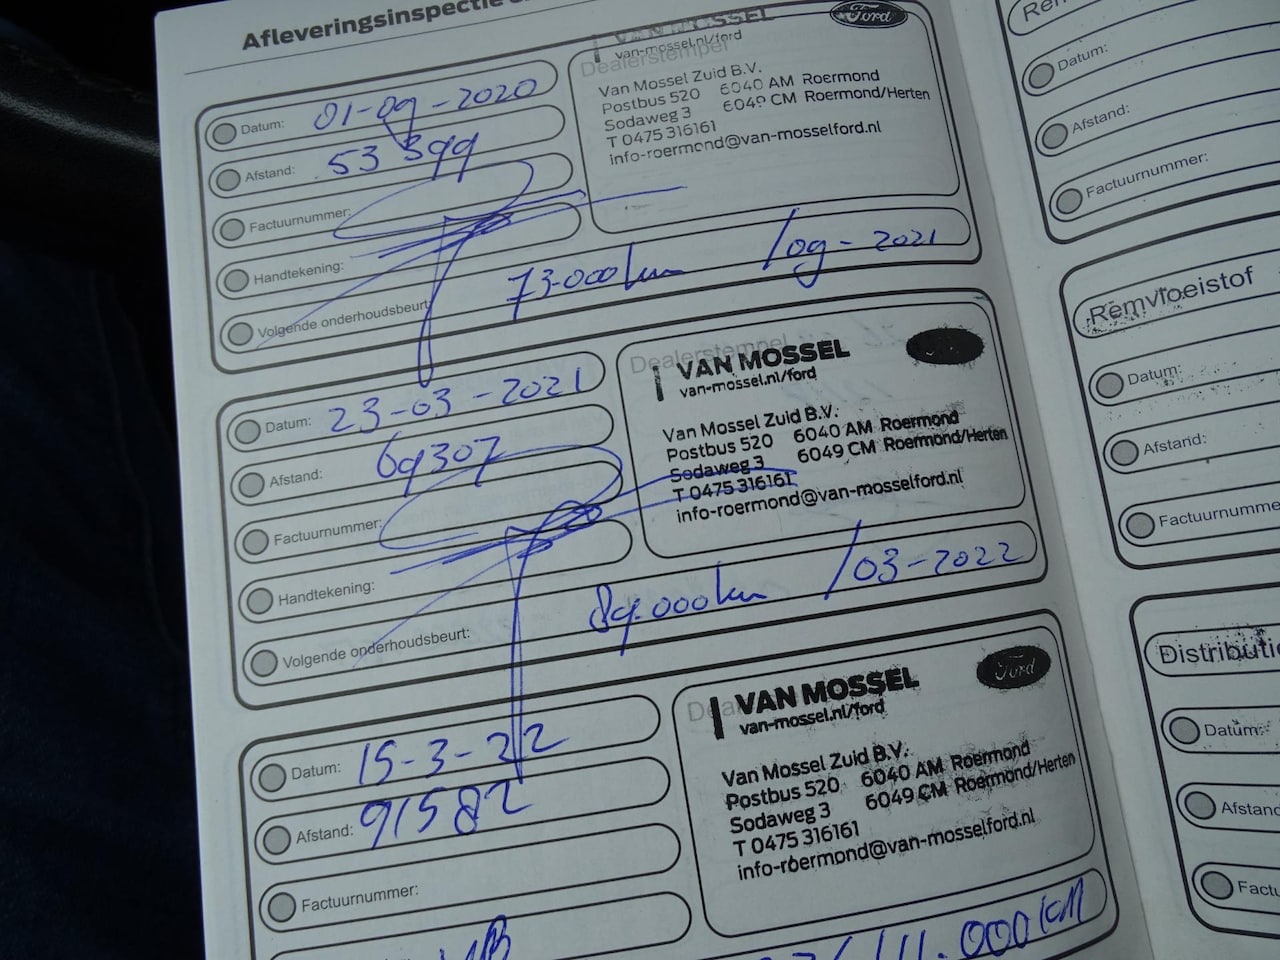 Afleveringsinspectie
VAN MOSSEL
Ford
van-mossel.nl/ford
Dealerstempel
Van Mossel Zuid B.V.
Postbus 520 6040 AM Roermond
Sodaweg 3 6049 CM Roermond/Herten
T 0475 316161
info-roermond@van-mosselford.nl
Datum: 01-09-2020
Afstand: 53 399
Factuurnummer:
Handtekening:
Volgende onderhoudsbeurt: 73.000 km /09-2021
Dealerstempel
VAN MOSSEL
van-mossel.nl/ford
Van Mossel Zuid B.V.
Postbus 520 6040 AM Roermond
Sodaweg 3 6049 CM Roermond/Herten
T 0475 316161
info-roermond@van-mosselford.nl
Datum: 23-03-2021
Afstand: 69307
Factuurnummer:
Handtekening:
Volgende onderhoudsbeurt: 89.000 km /03-2022
VAN MOSSEL
Ford
van-mossel.nl/ford
Van Mossel Zuid B.V.
Postbus 520 6040 AM Roermond
Sodaweg 3 6049 CM Roermond/Herten
T 0475 316161
info-roermond@van-mosselford.nl
Datum: 15-3-22
Afstand: 91582
Factuurnummer:
111.000 KM
Datum:
Afstand:
Factuurnummer:
Remvloeistof
Datum:
Afstand:
Datum: